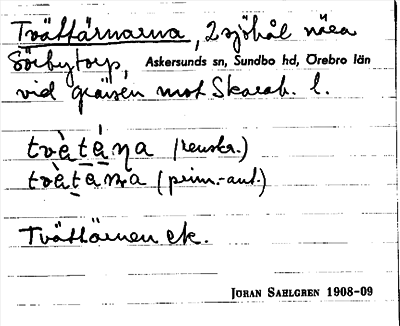 Tvättärnarna, 2 sjöhål nära
Sörbytorp, Askersunds sn, Sundbo hd, Örebro län
vid gränsen mot Skarab. l.
tvὲtáṇa (renskr.)
tvὲtäna (prim.-ant.)
Tvättärnen ek.
JÖRAN SAHLGREN 1908-09